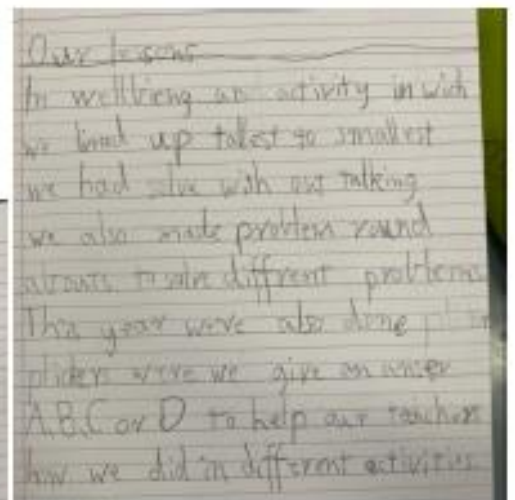 Our lessons
In wellbieng an activity in wich
we lined up tallest to smallest
we had solve with out talking
we also made problem round
abouts to solve diffrent problems
This year we've also done
plickers were we give an anser
A,B,C or D to help our teachers
how we did in different activities